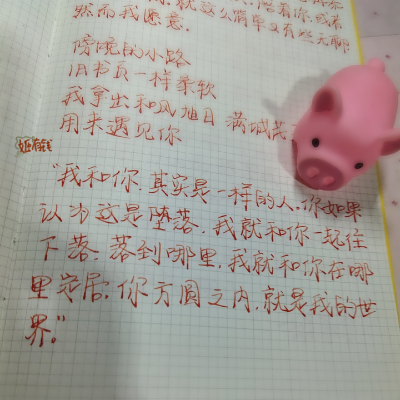 然而我愿意.
傍晚的小路
旧书页一样柔软
我拿出和风旭日 满城芳
用来遇见你
"我和你,其实是一样的人,你如果
认为这是堕落,我就和你一起往
下落.落到哪里,我就和你在哪
里定居.你方圆之内,就是我的世
界."